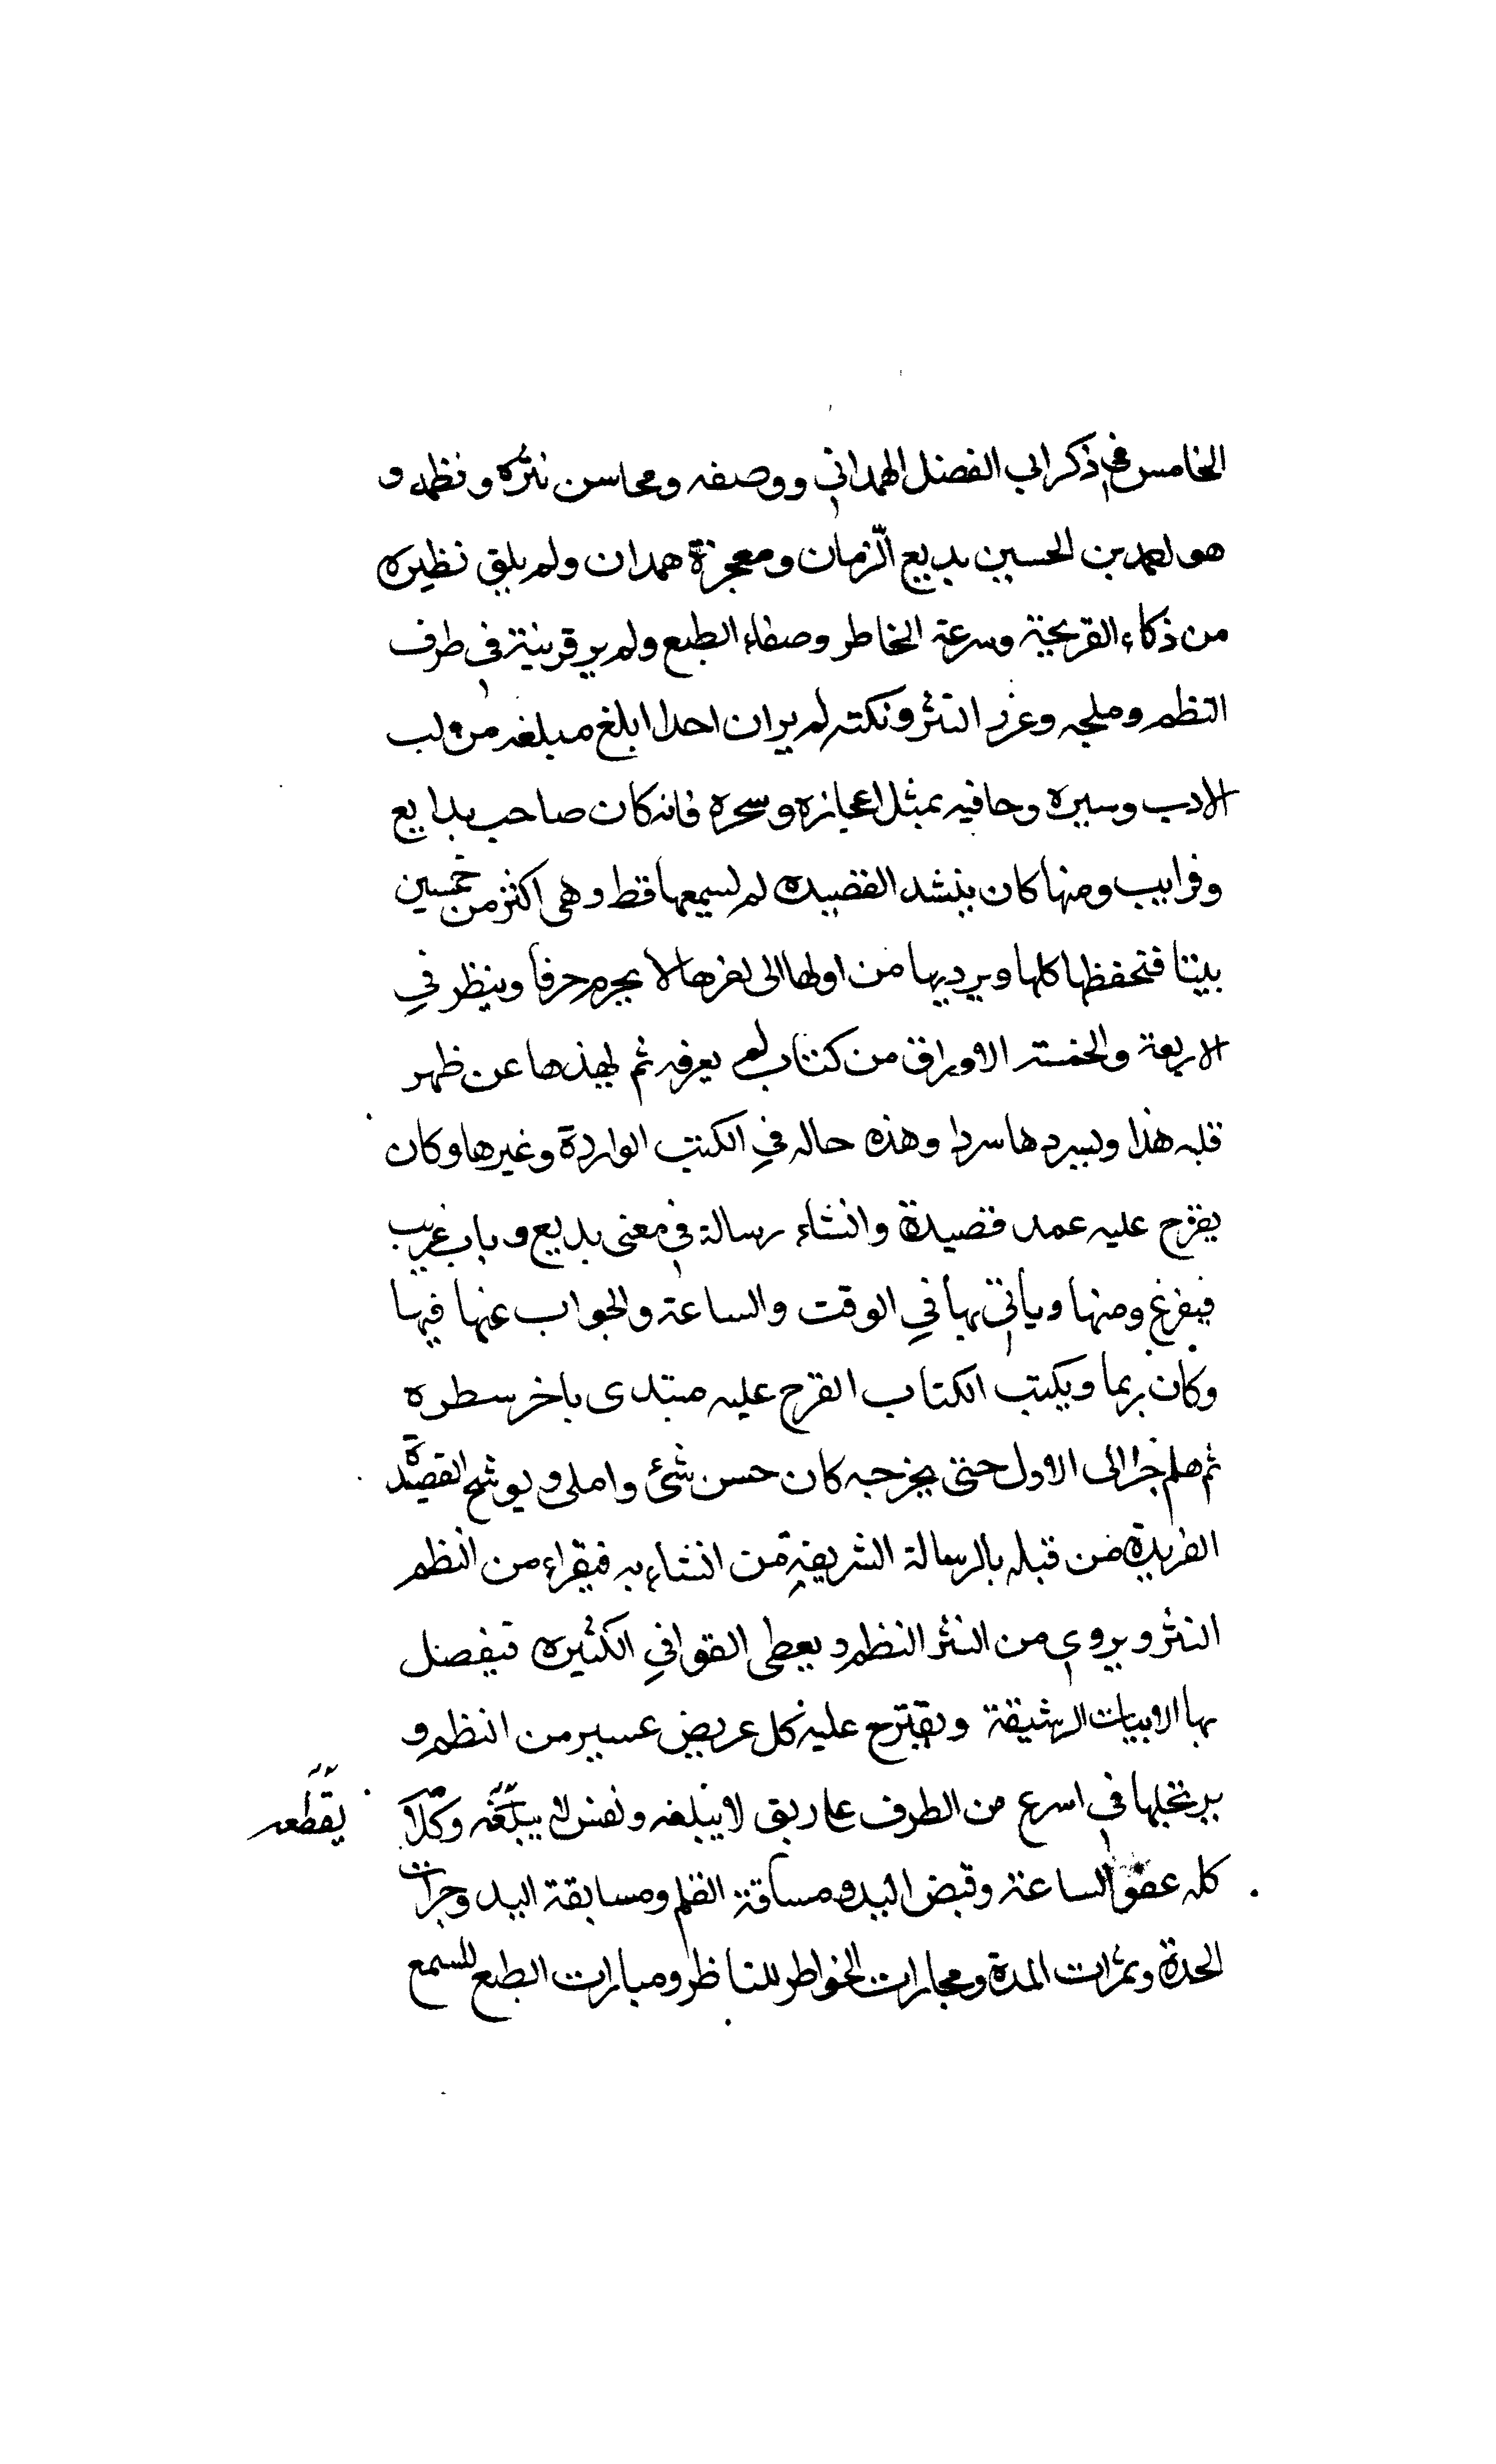 الخامس في ذكر ابي الفضل الهمداني ووصفه ومحاسن نثره ونظمه و
هو احمد بن الحسين بديع الزمان ومعجزة همدان ولم يلق نظيره
من ذكاء القريحة وسرعة الخاطر وصفاء الطبع ولم ير قرينة في طرف
النظم وملحه وغرر النثر ونكته لم ير ان احدا ابلغ مبلغه من لب
الادب وسيره وجافيه بمثل اعجازه وسحره فانه كان صاحب بدايع
وغرايب ومنها كان ينشد القصيده لم يسمعها قط وهى اكثر من خمسين
بيتا فتحفظها كلها ويرديها من اولها الى اخرها لا يجرم حرفا وينظر في
الاربعة والخمسة الاوراق من كتاب لم يعرفه ثم يهذها عن ظهر
قلبه هذا ويسردها سردا وهذه حاله في الكتب الواردة وغيرها وكان
يقترح عليه عمد قصيدة وانشاء رسالة في معنى بديع وباب غريب
فيفرغ ومنها ويأتى بها في الوقت والساعة والجواب عنها فيها
وكان ربما ويكتب الكتاب القرح عليه مبتدى باخر سطره
ثم هلم جرا الى الاول حتى يخرجه كان حسن شئ واملى ويوشح القصيدة
الفريدة من قبله بالرسالة الشريفة من انشاء به فيقراء من النظم
النثر ويروى من النثر النظم ويعطى القوافي الكثيره فيفصل
بها الابيات الرشيقة ويقترح عليه كل عريض عسير من النظم و
يرتجلها في اسرع من الطرف على ريق لا يبلغه ونفس لا يبلغه وكلا يقطعه
كله عفو الساعة وقبض اليد ومساقة القلم ومسابقة اليد وجرات
الحدة وثمرات المدة ومجارات الخواطر للناظر ومبارات الطبع للسمع